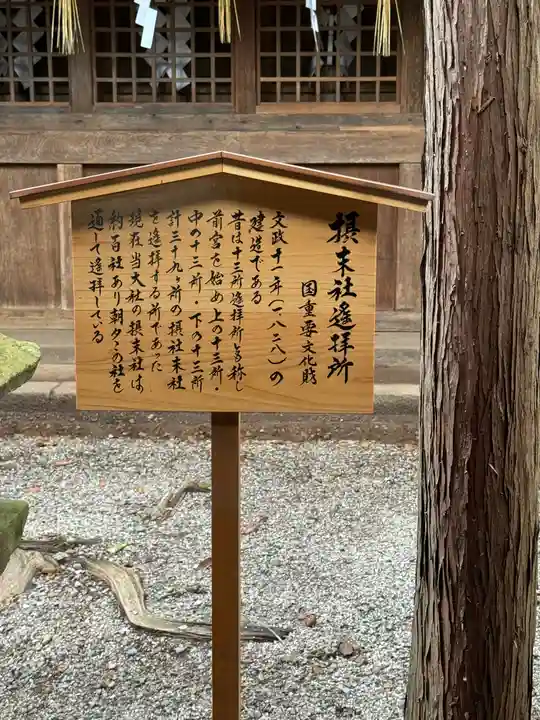 摂末社遥拝所
国重要文化財
文政十一年（一八二八）の
建造である
昔は十三所遥拝所と称し
前宮を始め上の十三所・
中の十三所・下の十三所
計三十九ヶ所の摂社末社
を遥拝する所であった
現在当大社の摂末社は
約百社あり朝夕この社を
通して遥拝している